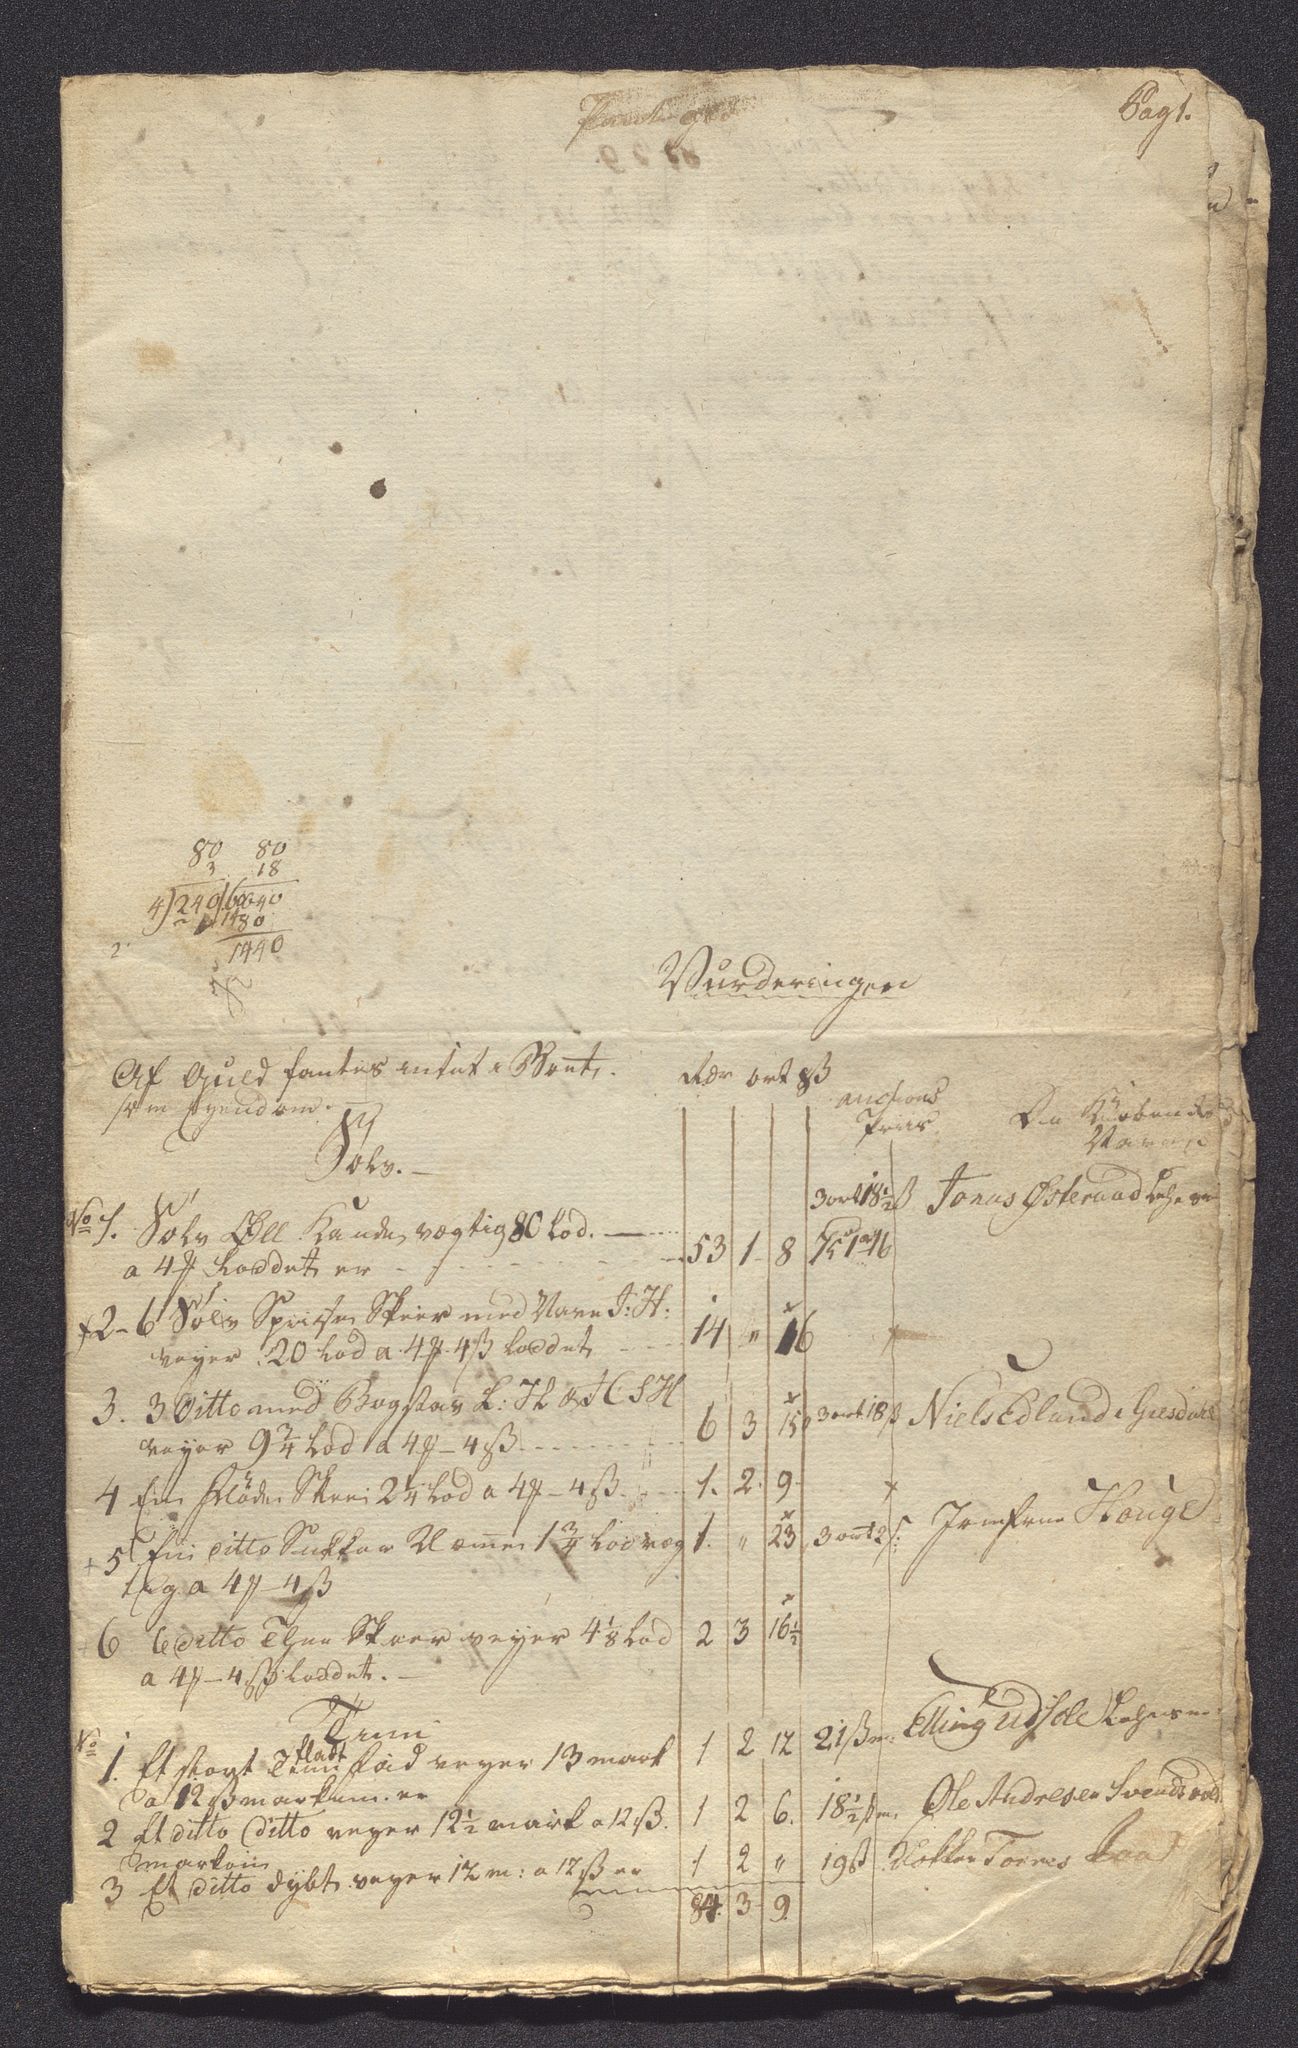 Pag 1.
80 80
3 18
4)240 640
80
1440
Vurderingen
Af Guld fantes intet i Boet,
som Eyendom.
Rdr ort ß
Auctions
Priis
De Kiøbendes
Navne
Sølv.
No 1. Sølv Øll Kande vægtig 80 Lod.
a 4 Loddet er 53 1 8
3 ort 18½ ß Jonas Østeraad
2 - 6 Sølv Spiise Skeer med Navn J: H:
veyer 20 Lod a 4 - 4 ß Loddet 14 " 16
3. 3 Ditto med Bogstav L: H & H C S H
veyer 9¾ Lod a 4 - 4 ß 6 3 15 3 ort 18 ß Niels Edland i Giesdal
4 En Fløde Skee 2¼ Lod a 4 - 4 ß. 1. 2. 9.
5 En ditto Sukker Klemme 1¾ Lod væg 1. " 23 3 ort 2 ß: Jomfrue Houge
tig a 4 - 4 ß
6 6 ditto Thee Skeer veyer 4⅛ Lod 2 3 16½
a 4 - 4 ß Loddet.
Tinn
No 1. Et stort fladt Tinn Fad veyer 13 mark 1 2 12 21 ß Elling
a 12 ß marken er
2 Et ditto ditto veyer 12½ mark a 12 ß. 1 2 6. 18½ ß Ole Andresen
marken
3 Et ditto dybt veyer 12 m: a 12 ß er 1 2 " 19 ß Klokker Torres
84. 3 9.